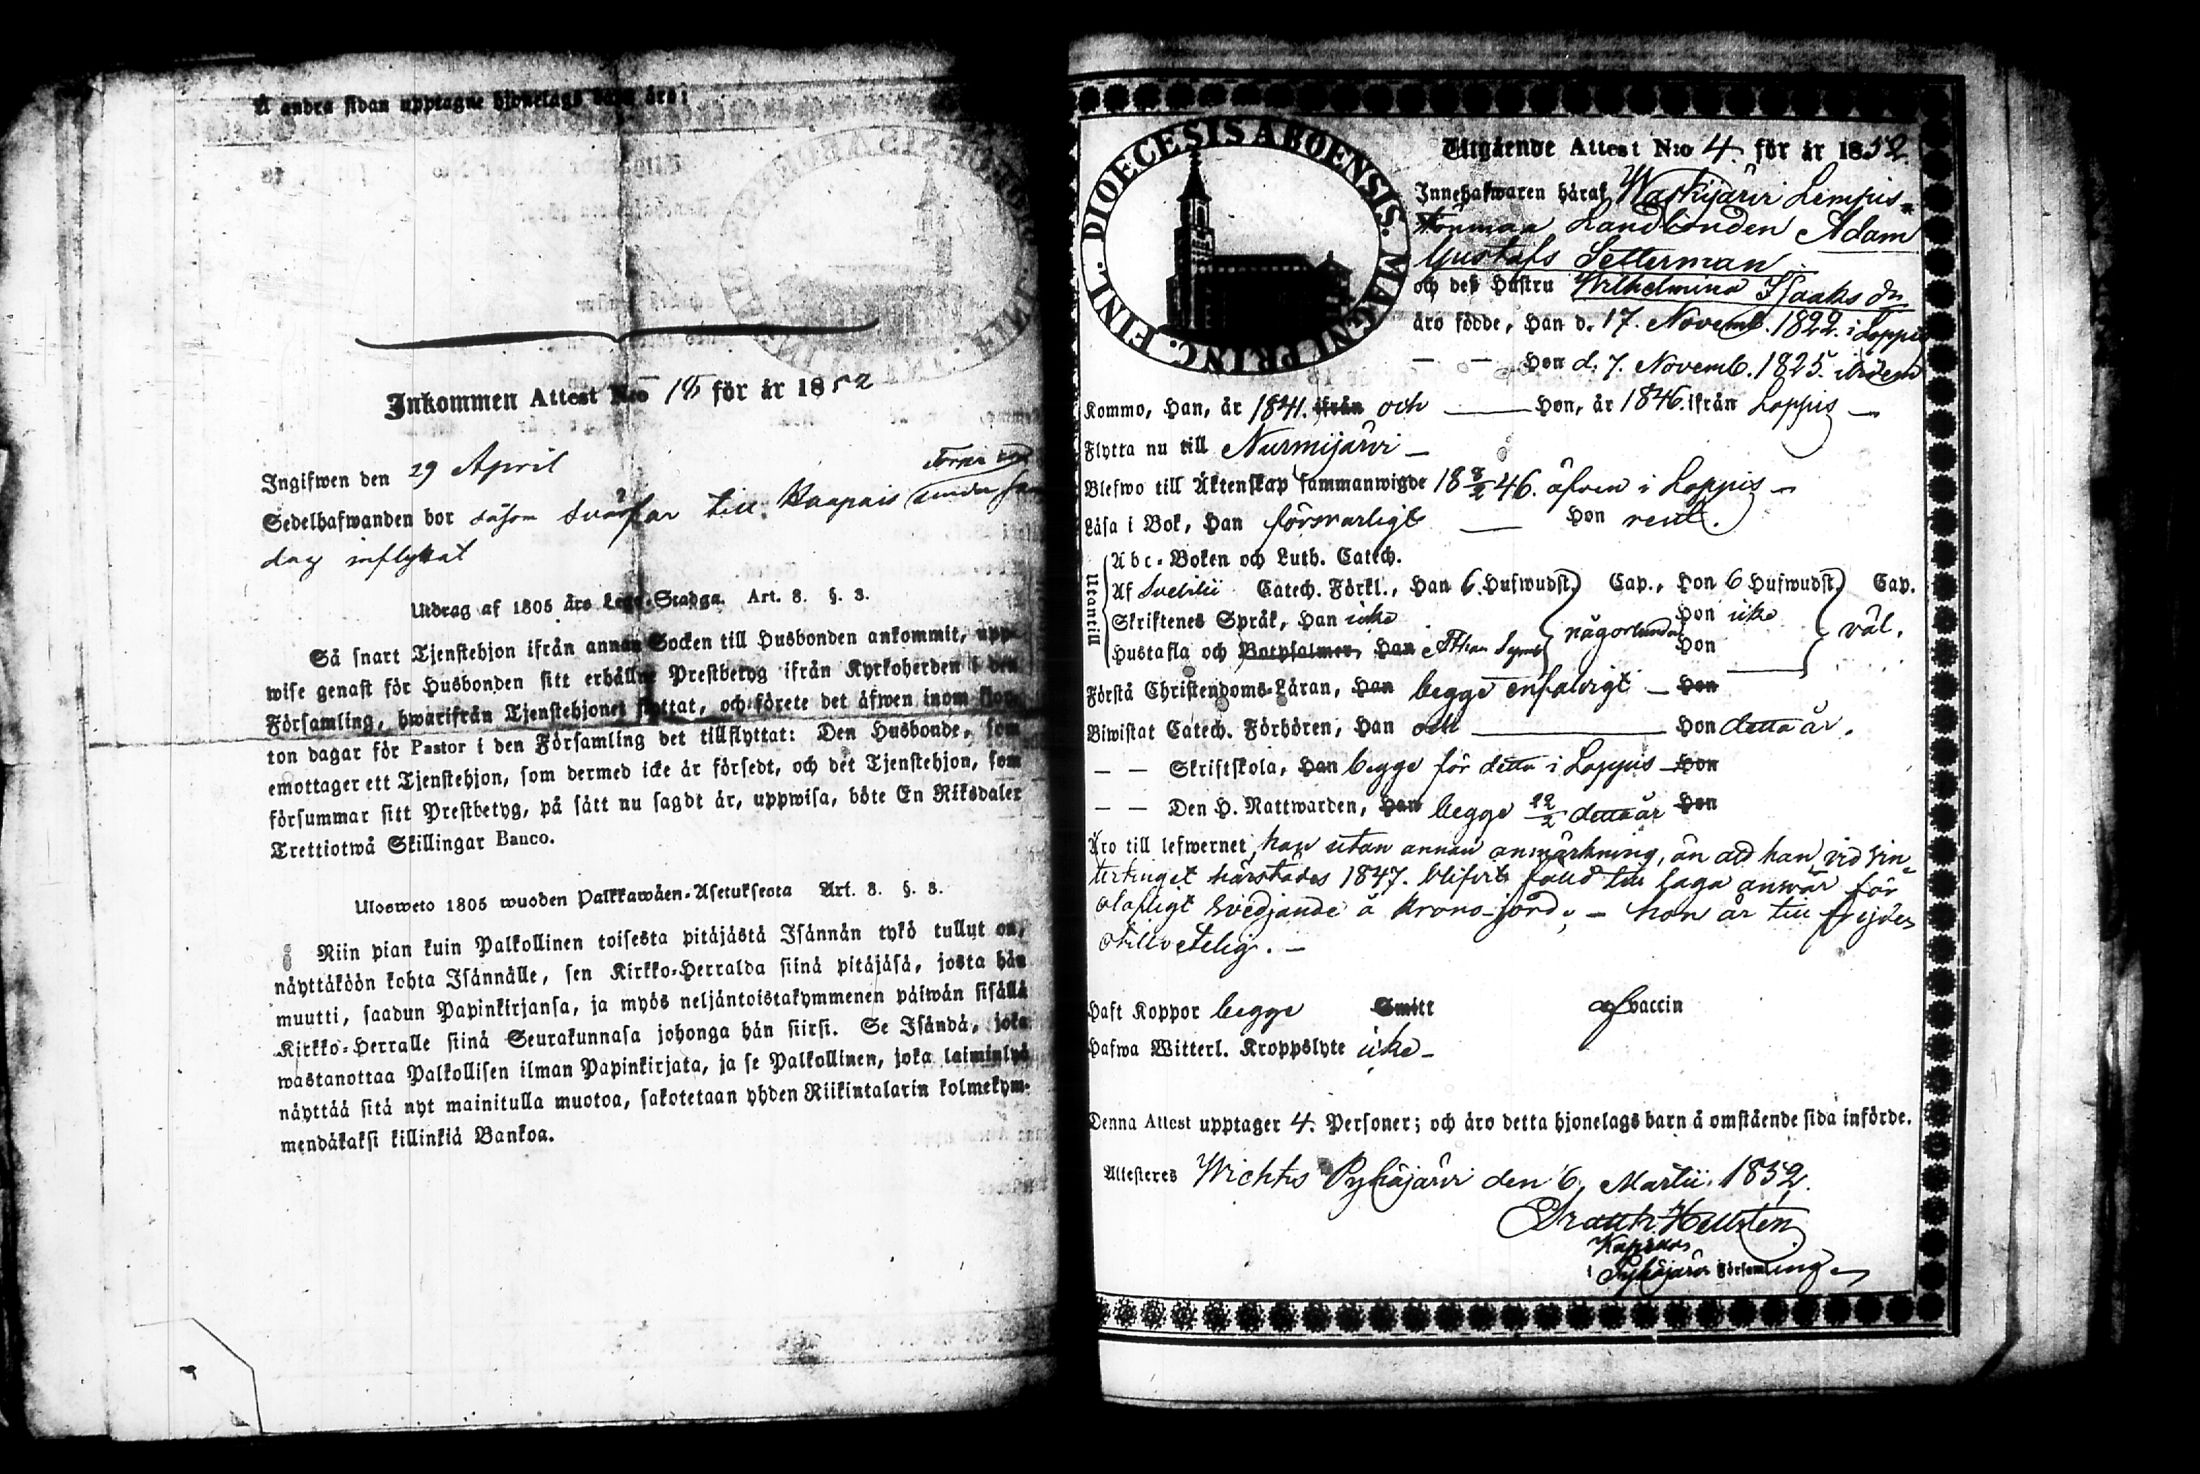 Å andra sidan upptagne hjonelags barn äro:
Inkommen Attest N:o 18 för år 1852
Ingifwen den 29 April
Sedelhafwanden bor såsom Svärfar till Kaapais
dag inflyttat
Utdrag af 1805 års Lego-Stadga. Art. 8. §. 3.
Så snart Tjenstehjon ifrån annan Socken till Husbonden ankommit, upp-
wise genast för Husbonden sitt erhållne Prestbetyg ifrån Kyrkoherden i den
Församling, hwarifrån Tjenstehjonet flyttat, och förete det äfwen inom fjor-
ton dagar för Pastor i den Församling det tillflyttat: Den Husbonde, som
emottager ett Tjenstehjon, som dermed icke är försedt, och det Tjenstehjon, som
försummar sitt Prestbetyg, på sätt nu sagdt är, uppwisa, böte En Riksdaler
Trettiotwå Skillingar Banco.
Ulosweto 1805 wuoden Palkkawäen-Asetuksesta Art. 8. §. 3.
Niin pian kuin Palkollinen toisesta pitäjästä Isännän tykö tullut on,
näyttäköön kohta Isännälle, sen Kirkko-Herralda siinä pitäjäsä, josta hän
muutti, saadun Papinkirjansa, ja myös neljäntoistakymmenen päiwän sisällä
Kirkko-Herralle siinä Seurakunnasa johonga hän siirsi. Se Isändä, joka
wastanottaa Palkollisen ilman Papinkirjata, ja se Palkollinen, joka laiminlyö
näyttää sitä nyt mainitulla muotoa, sakotetaan yhden Riikintalarin kolmekym-
mendäkaksi killinkiä Bankoa.
DIOECESIS ABOENSIS. MAGNI PRINC. FINL.
Utgående Attest N:o 4. för år 1852.
Innehafwaren häraf, Waskijärvi Lempis-
Landbonden Adam
Gustafs Setterman
och deß Hustru Wilhelmina Isaaks dr
äro födde, Han d. 17. Novemb. 1822. i Loppis
— — Hon d. 7. Novemb. 1825. ibidem
Kommo, Han, år 1841. ifrån och — Hon, år 1846. ifrån Loppis —
Flytta nu till Nurmijärvi —
Blefwo till Äktenskap sammanwigde 18 8/2 46. äfven i Loppis —
Läsa i Bok, Han försvarligt — Hon rent.
Utantill
Abc-Boken och Luth. Catech.
Af Svebilii Catech. Förkl., Han 6. Hufwudst. Cap., Hon 6 Hufwudst. Cap.
Skriftenes Språk, Han icke Hon icke
Hustafla och Botpsalmer, Han Athan. Symb. någorlunda Hon väl.
Förstå Christendoms-Läran, Han begge enfaldigt — Hon
Biwistat Catech. Förhören, Han och — Hon detta år.
— — Skriftskola, Han begge för detta i Loppis — Hon
— — Den H. Nattwarden, Han begge 22/2 detta år Hon
Äro till lefwernet, han utan annan anmärkning, än att han vid vin-
tertinget härstädes 1847. blifvit fälld till laga answar för
olofligt svedjande å krono-jord; — hon är till frejden
otillvitelig. —
Haft Koppor begge Smitt af vaccin
Hafwa Witterl. Kroppslyte icke —
Denna Attest upptager 4. Personer; och äro detta hjonelags barn å omstående sida införde.
Attesteres Wichtis Pyhäjärvi den 6. Martii. 1852.
Hellstén
Kapellan
i Pyhäjärvi Församling